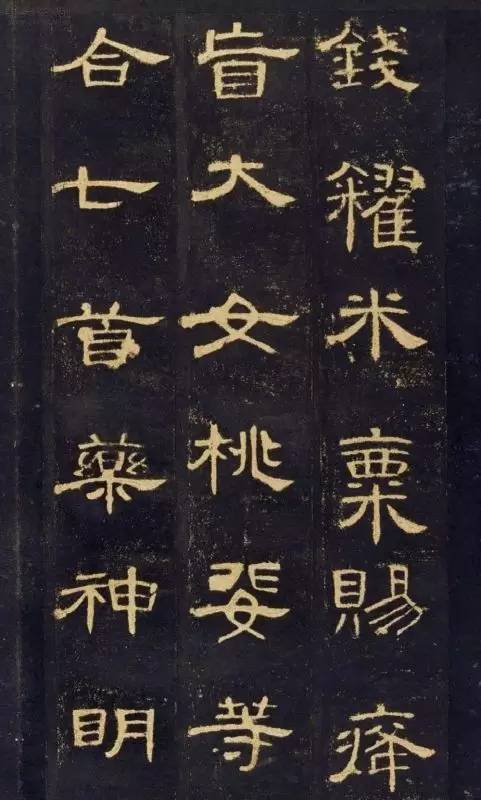 錢糴米粟賜𤸇
盲大女桃婓等
合七首藥神明